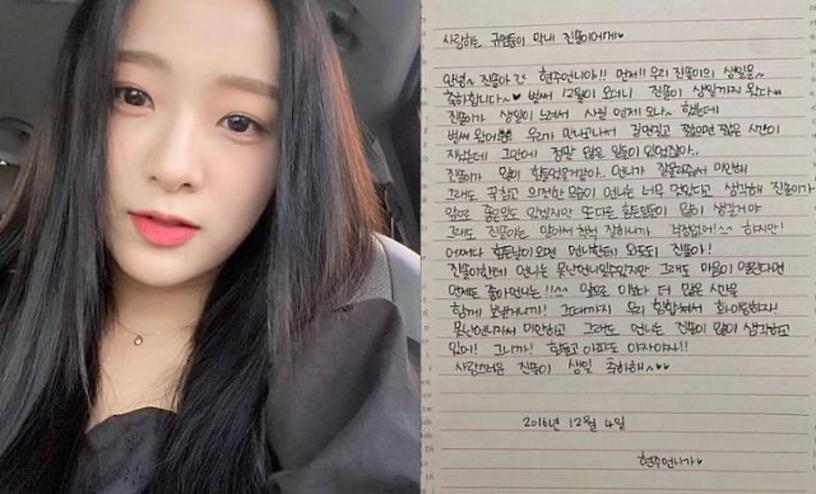 사랑하는 귀염둥이 막내 진쏠이에게♥
안녕~ 진쏠아 현주언니야!! 먼저!! 우리 진쏠이의 생일을~
축하합니다~♥ 벌써 12월이 오더니 진쏠이 생일까지 왔다
진쏠이가 생일이 느려서 사실 언제 오나~ 했는데
벌써 왔어 우리가 만나고나서 길면길고 짧으면 짧은 시간이
지났는데 그안에 정말 많은 일들이 있었잖아..
진쏠이가 많이 힘들었을거같아.. 언니가 잘몰라줘서 미안해
그래도 꾹참고 의젓한 모습이 언니는 너무 멋있다고 생각해 진쏠이가
앞으로 좋은일도 있겠지만 또다른 힘든일들이 많이 생길거야
그래도 진쏠이는 알아서 척척 잘하니까 걱정없어!^^ 하지만!
어쩌다 힘든날이오면 언니한테 와도되 진쏠아!
진쏠이한테 언니는 못난언니일수있지만 그래도 마음이 열린다면
언제든 좋아언니는!!^^ 앞으로 이보다 더 많은 시간을
함께 보낼거니까! 그때까지 우리 힘합쳐서 화이팅하자!
못난언니라서 미안하고 그래도 언니는 진쏠이 많이 생각하고
있어! 그니까! 힘들고 아파도 아자아자!!
사랑스러운 진쏠이 생일 축하해~♥♥
2016년 12월 4일
현주언니가♥